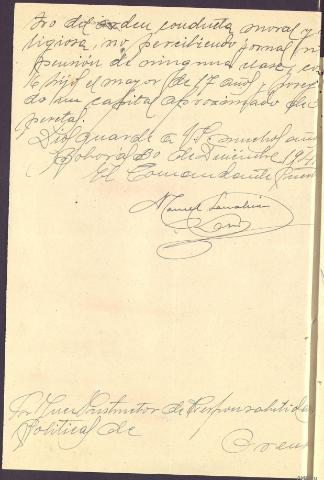 tro del orden conducta moral y
ligiosa, no percibiendo jornal ni
pensión de ninguna clase, y co
6 hijos el mayor de 17 años y pose
do un capital aproximado de
pesetas.
Dios guarde a V.S. muchos años
30 de Diciembre 1941
El Comandante Puesto
Manuel
Sr Juez Instructor de Responsabilida
Politicas de
Orens